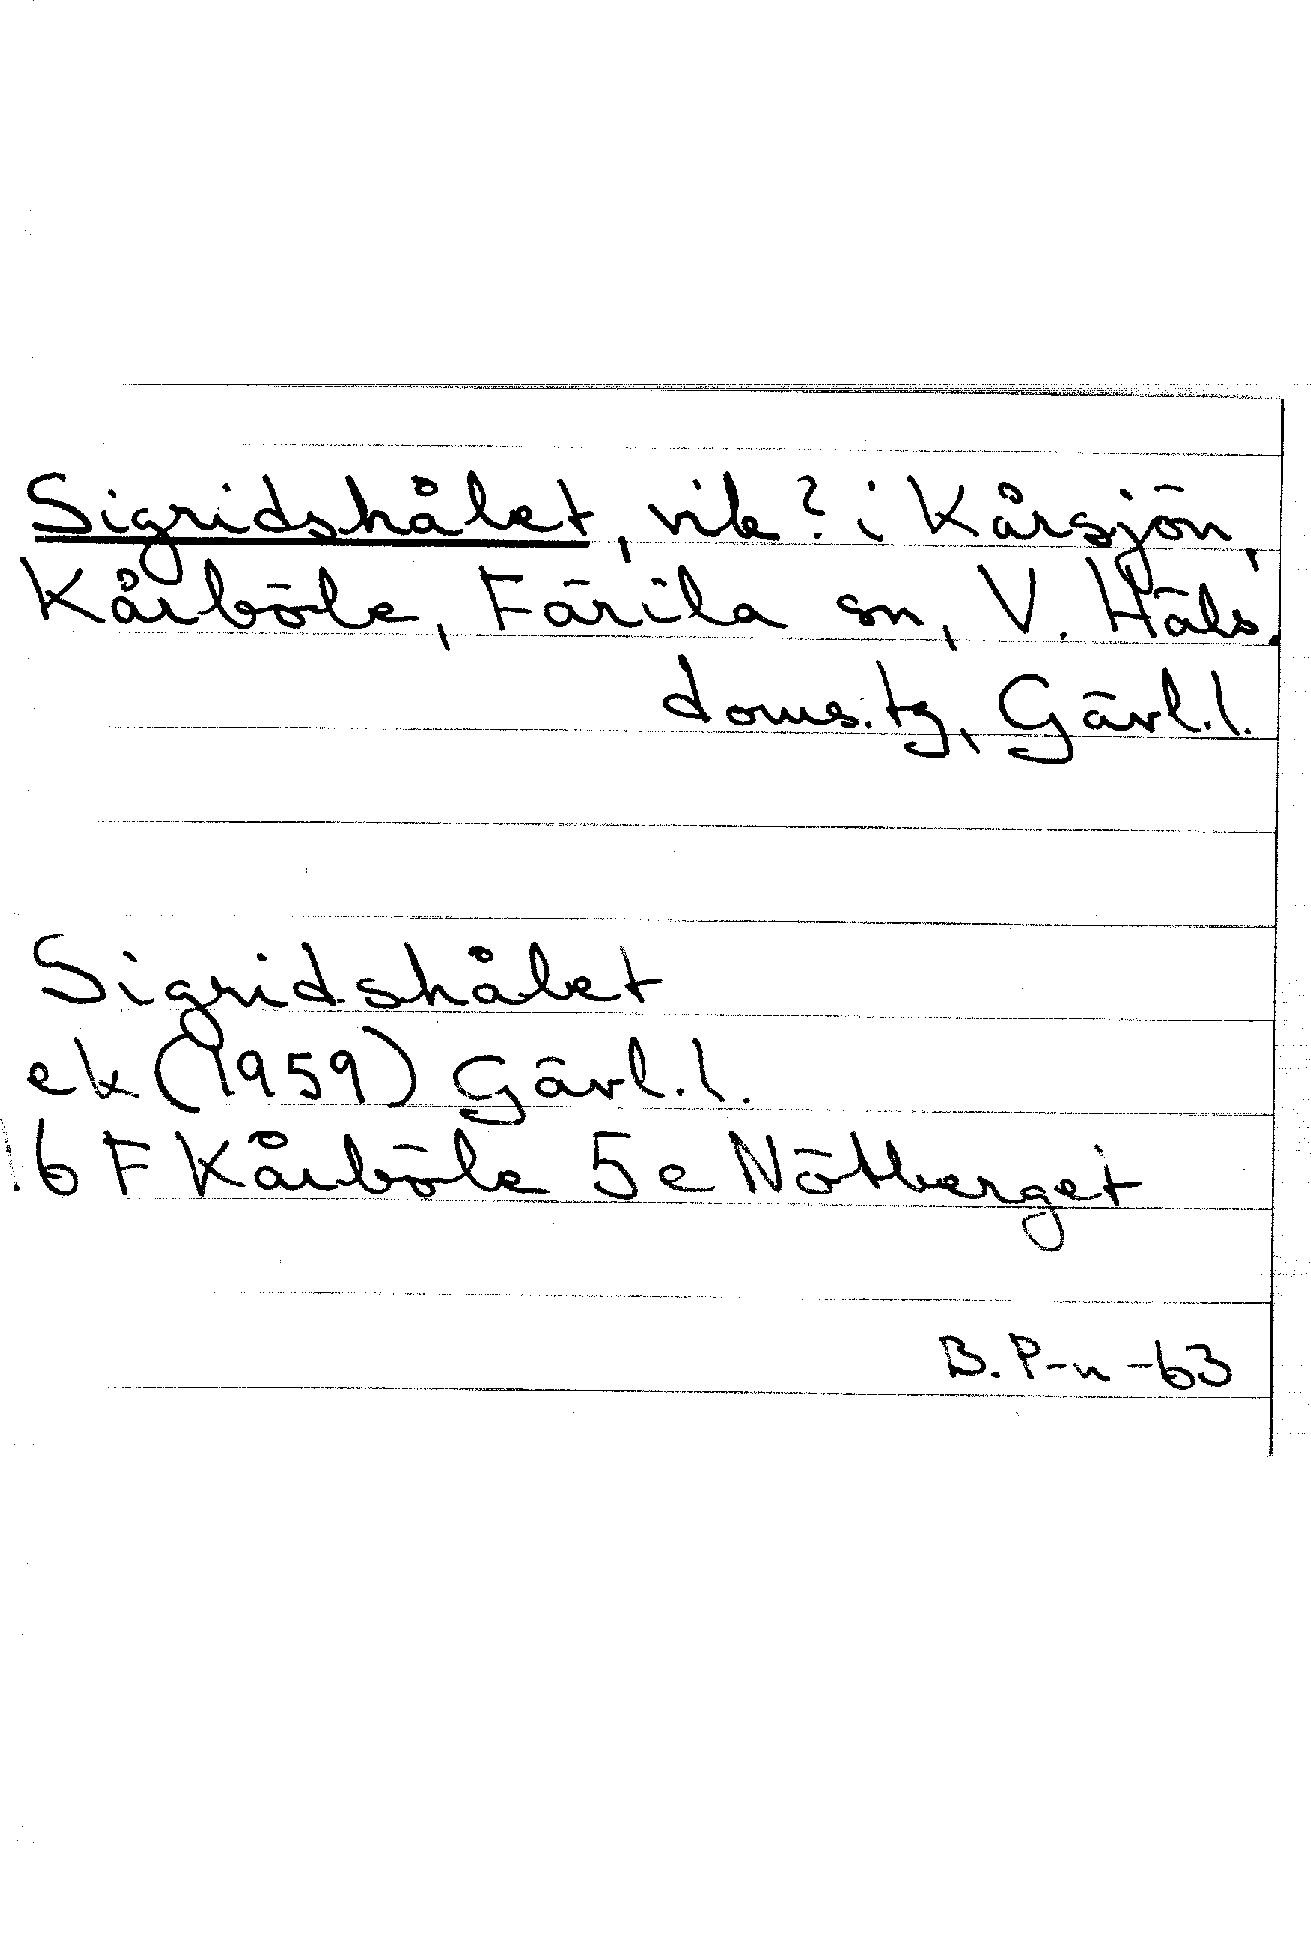 Sigridshålet, vik? i Kårsjön,
Kårböle, Färila sn, V. Häls.
doms. tg, Gävl. l.
Sigridshålet
ek (1959) Gävl. l.
16 F Kårböle 5 e Nötberget
B. P-n -63